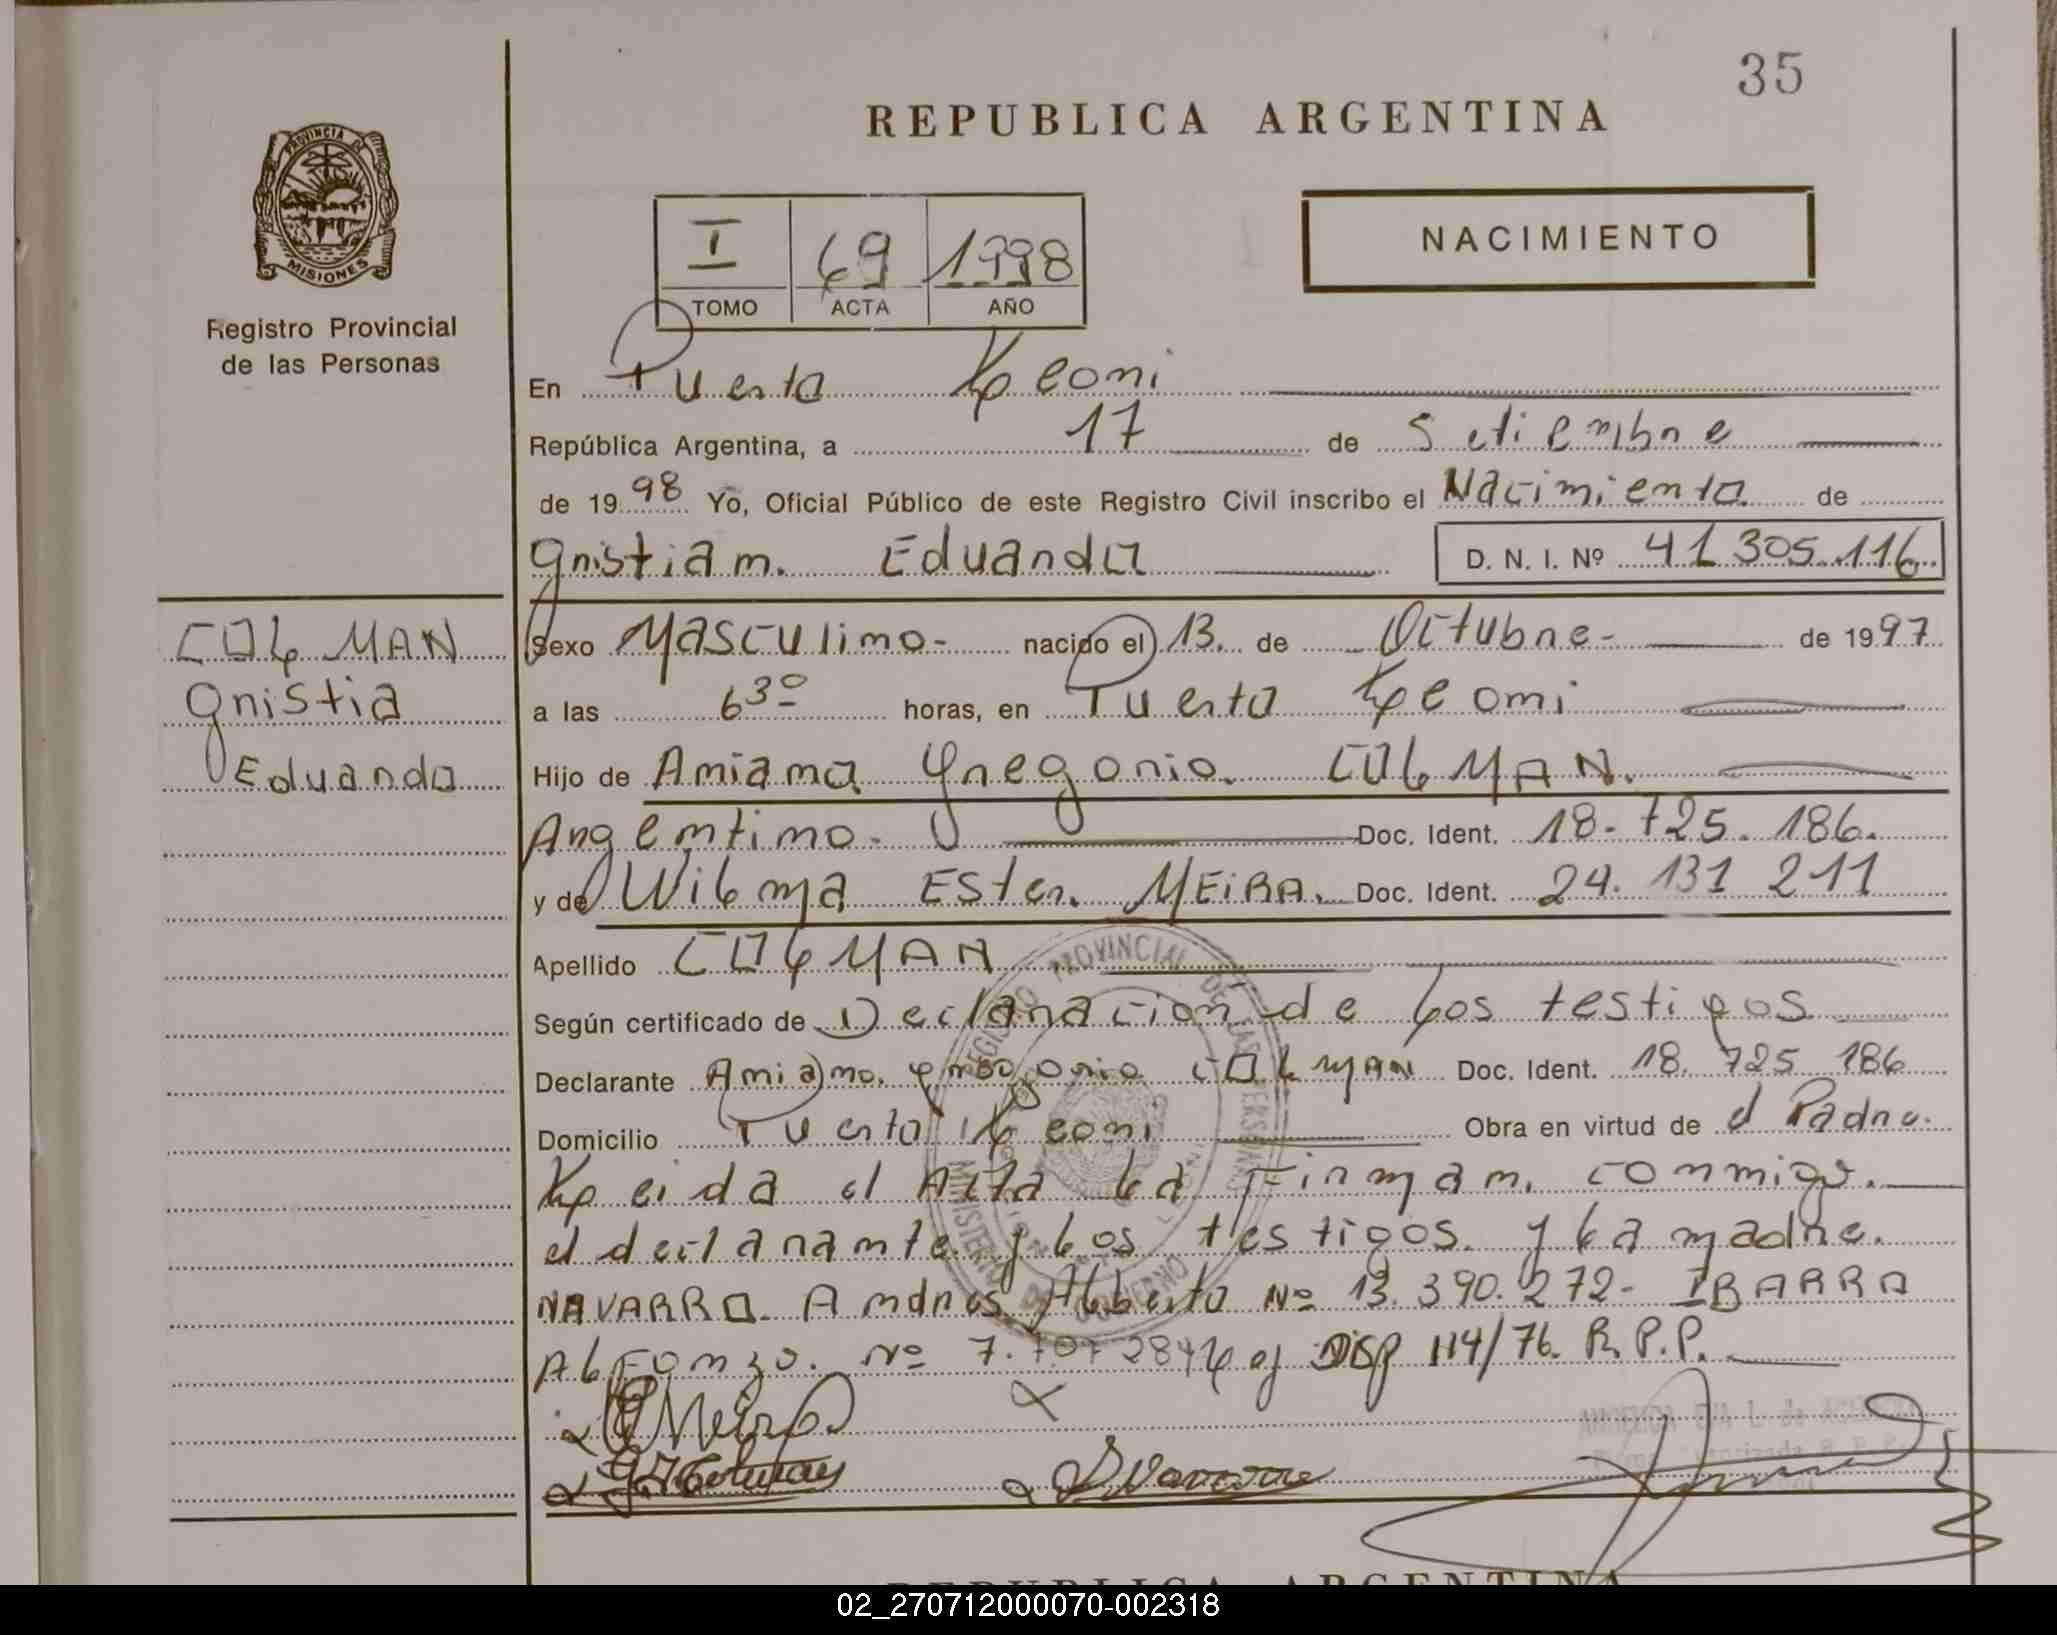 35
REPUBLICA ARGENTINA
PROVINCIA
MISIONES
Registro Provincial
de las Personas
I 69 1998
TOMO ACTA AÑO
NACIMIENTO
En Puerto Leoni
República Argentina, a 17 de Setiembre
de 1998 Yo, Oficial Público de este Registro Civil inscribo el Nacimiento de
Cristian Eduardo D. N. I. Nº 41.305.116
COLMAN
Cristia
Eduardo
Sexo Masculino- nacido el 13 de Octubre- de 1997
a las 6 30 horas, en Puerto Leoni
Hijo de Amiamo Gregorio COLMAN.
Argentino. Doc. Ident. 18.725.186.
y de Wilma Ester MEIRA. Doc. Ident. 24.131 211
Apellido COLMAN
Según certificado de Declaracion de los testigos
Declarante Amiamo Gregorio COLMAN Doc. Ident. 18.725 186
Domicilio Puerto Leoni Obra en virtud de el Padre.
Leida el Acta la Firman conmigo.
el declarante y los testigos y la madre.
NAVARRO Andres Alberto Nº 13.390.272- IBARRA
Alfonzo. Nº 7.707 284 Disp 114/76. R.P.P.
REGISTRO PROVINCIAL DE LAS PERSONAS
MINISTERIO DE GOBIERNO
REPUBLICA ARGENTINA
02_270712000070-002318